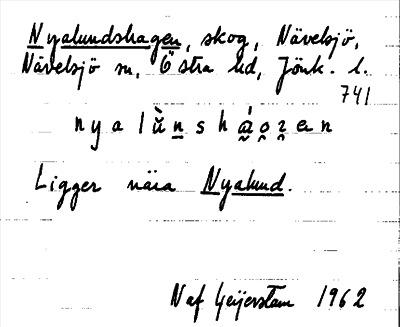 Nyalundshagen, skog, Nävelsjö,
Nävelsjö sn, Östra hd, Jönk. l.
741
Ligger nära Nyalund.
Naf Geijerstam 1962